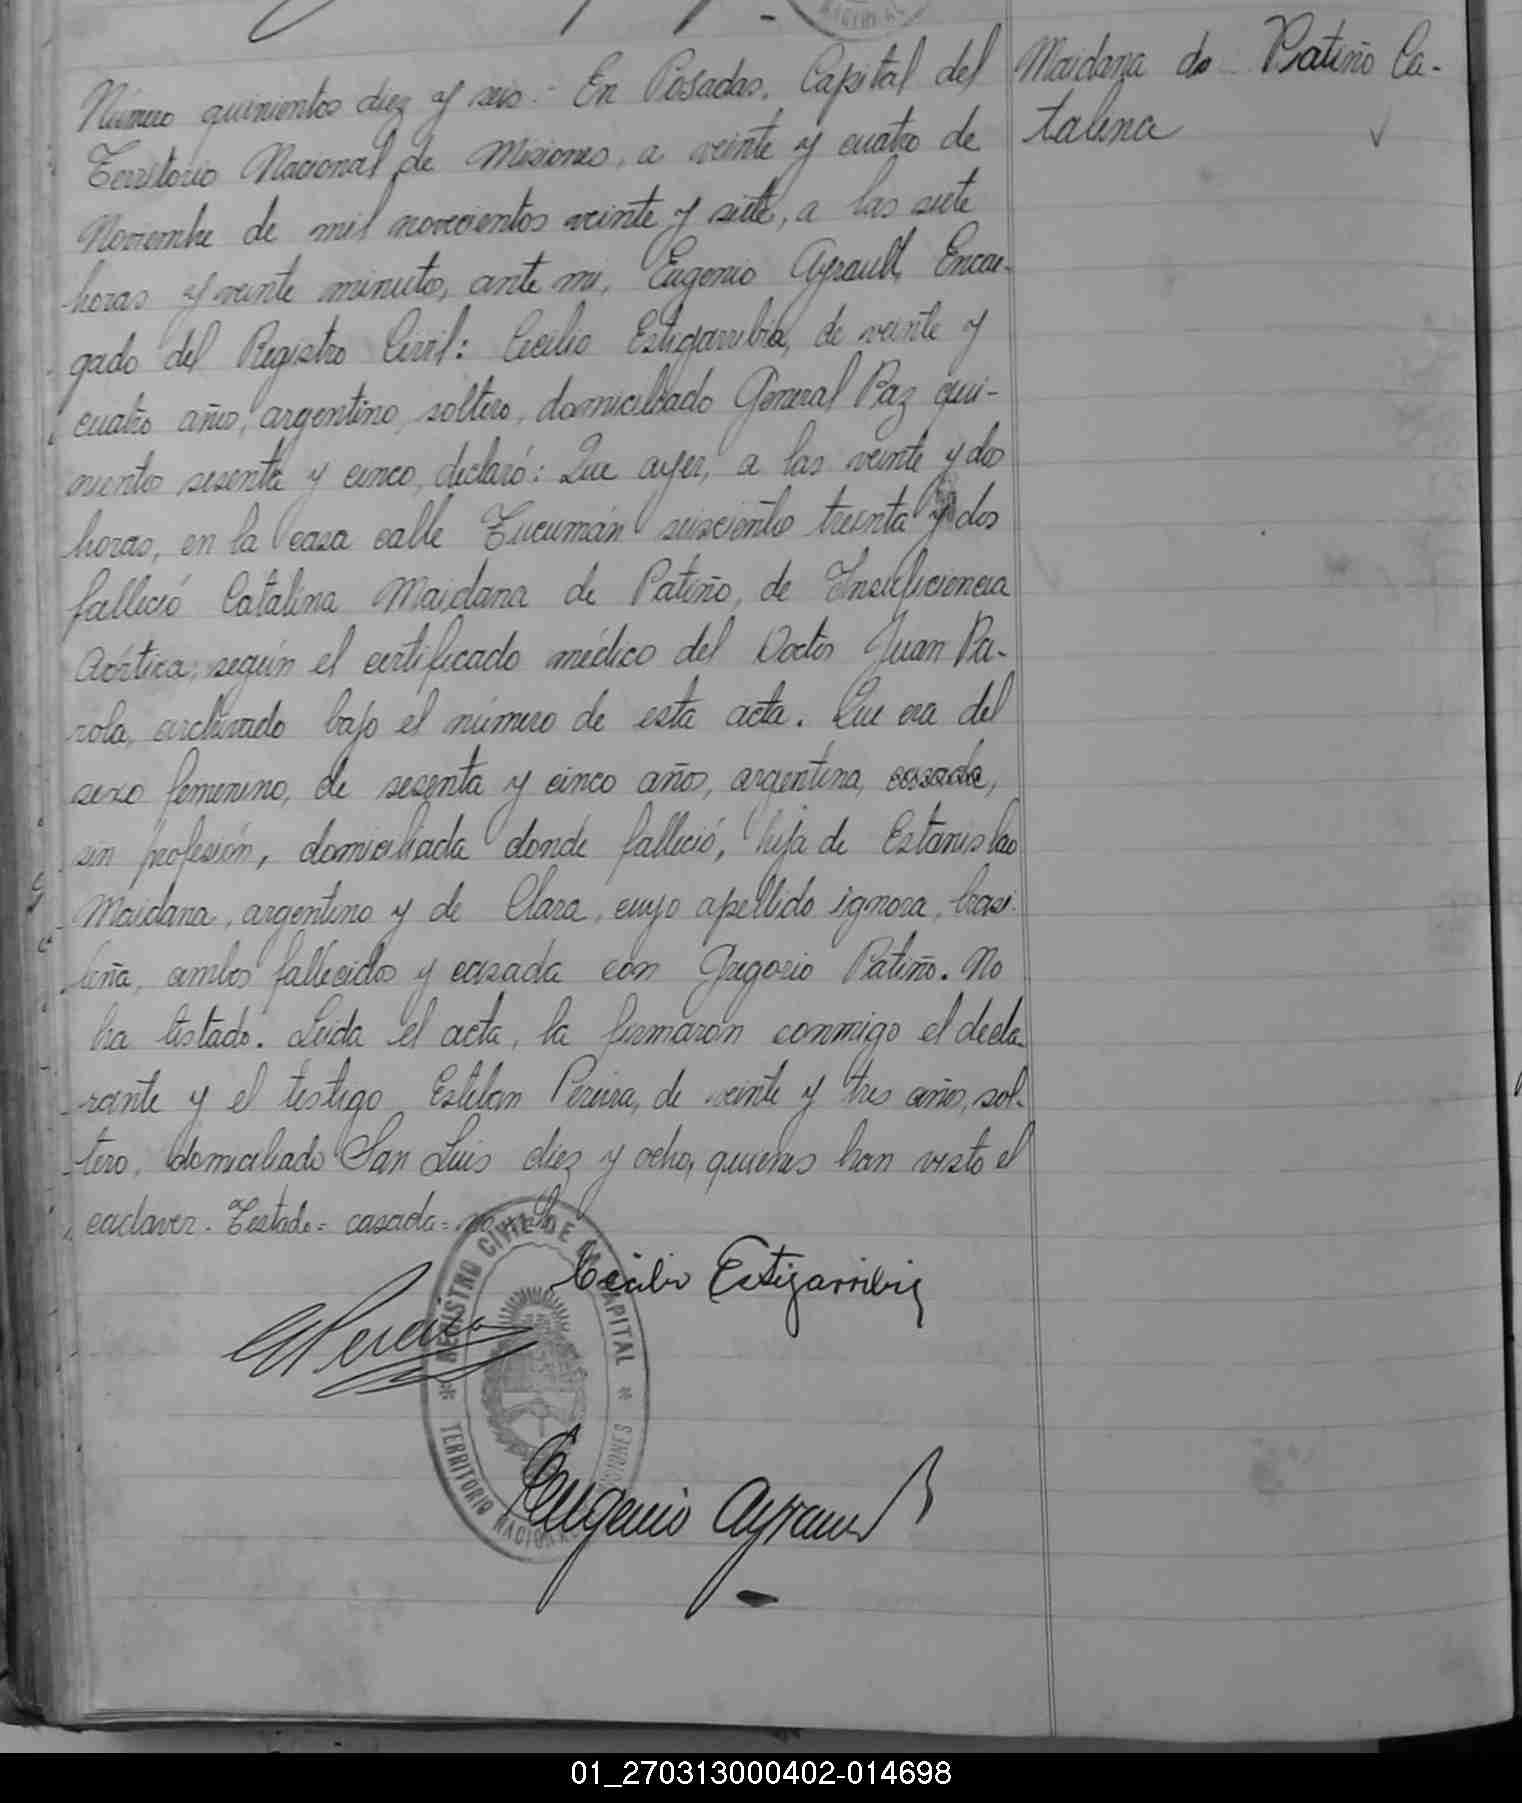 Maidana de Patiño Ca-
talina
Número quinientos diez y seis.- En Posadas, Capital del
Territorio Nacional de Misiones, a veinte y cuatro de
Noviembre de mil novecientos veinte y siete, a las siete
horas y veinte minutos, ante mi, Eugenio Ayrault, Encar-
gado del Registro Civil: Cecilio Estigarribia, de veinte y
cuatro años, argentino, soltero, domiciliado General Paz qui-
nientos sesenta y cinco, declaró: Que ayer, a las veinte y dos
horas, en la casa calle Tucumán seiscientos treinta y dos
falleció Catalina Maidana de Patiño, de Insuficiencia
Aórtica, según el certificado médico del Doctor Juan Pa-
rola, archivado bajo el número de esta acta. Que era del
sexo femenino, de sesenta y cinco años, argentina, casada,
sin profesión, domiciliada donde falleció, hija de Estanislao
Maidana, argentino y de Clara, cuyo apellido ignora, brasi-
leña, ambos fallecidos y casada con Gregorio Patiño. No
ha testado. Leida el acta, la firmaron conmigo el decla-
rante y el testigo Esteban Pereira, de veinte y tres años, sol-
tero, domiciliado San Luis diez y ocho, quienes han visto el
cadaver. Testado= casada= no vale
Cecilio Estigarribia
EPereira
REGISTRO CIVIL DE LA CAPITAL
TERRITORIO NACIONAL MISIONES
Eugenio Ayrault
01_270313000402-014698